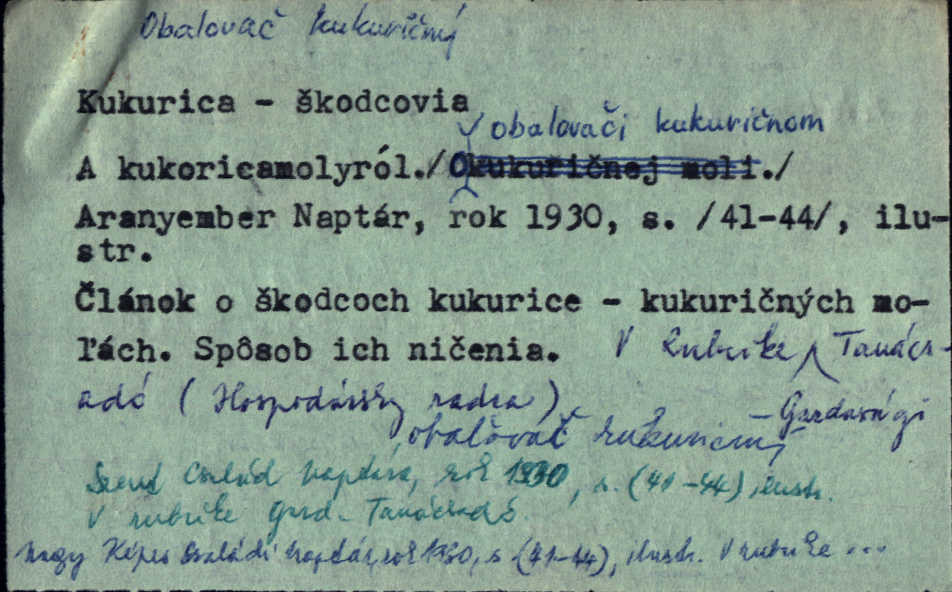 Obalovač kukuričný
Kukurica - škodcovia
obalovači kukuričnom
A kukoricamolyról./O kukuričnej moli./
Aranyember Naptár, rok 1930, s. /41-44/, ilu-
str.
Článok o škodcoch kukurice - kukuričných mo-
ľách. Spôsob ich ničenia. V rubrike Tanács-
adó (Hospodársky radca)
- Gazdasági
obalovač kukuričný
Szent Család naptára, rok 1930, s. (41-44), ilustr.
V rubrike Gazd. Tanácsadó.
Nagy Képes Családi naptár, rok 1930, s (41-44), ilustr. V rubrike ...